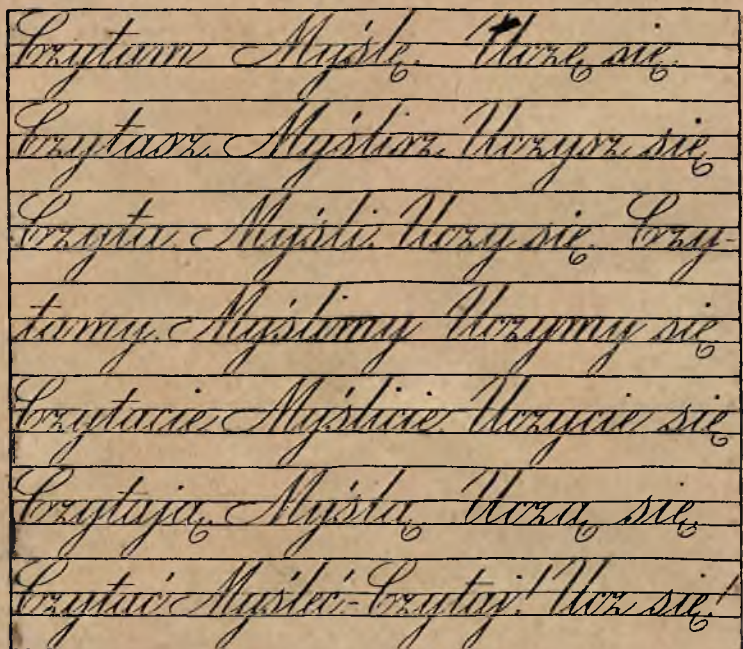 Czytam Myślę. Uczę się.
Czytasz. Myślisz. Uczysz się
Czyta. Myśli. Uczy się. Czy-
tamy. Myślimy Uczymy się
Czytacie Myślicie Uczycie się
Czytają. Myślą. Uczą się.
Czytać Myśleć-Czytaj! Ucz się!